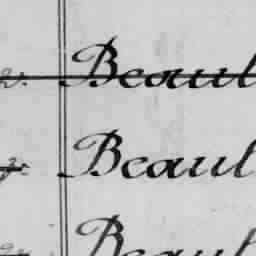 Beaul
Beaul
Beaul